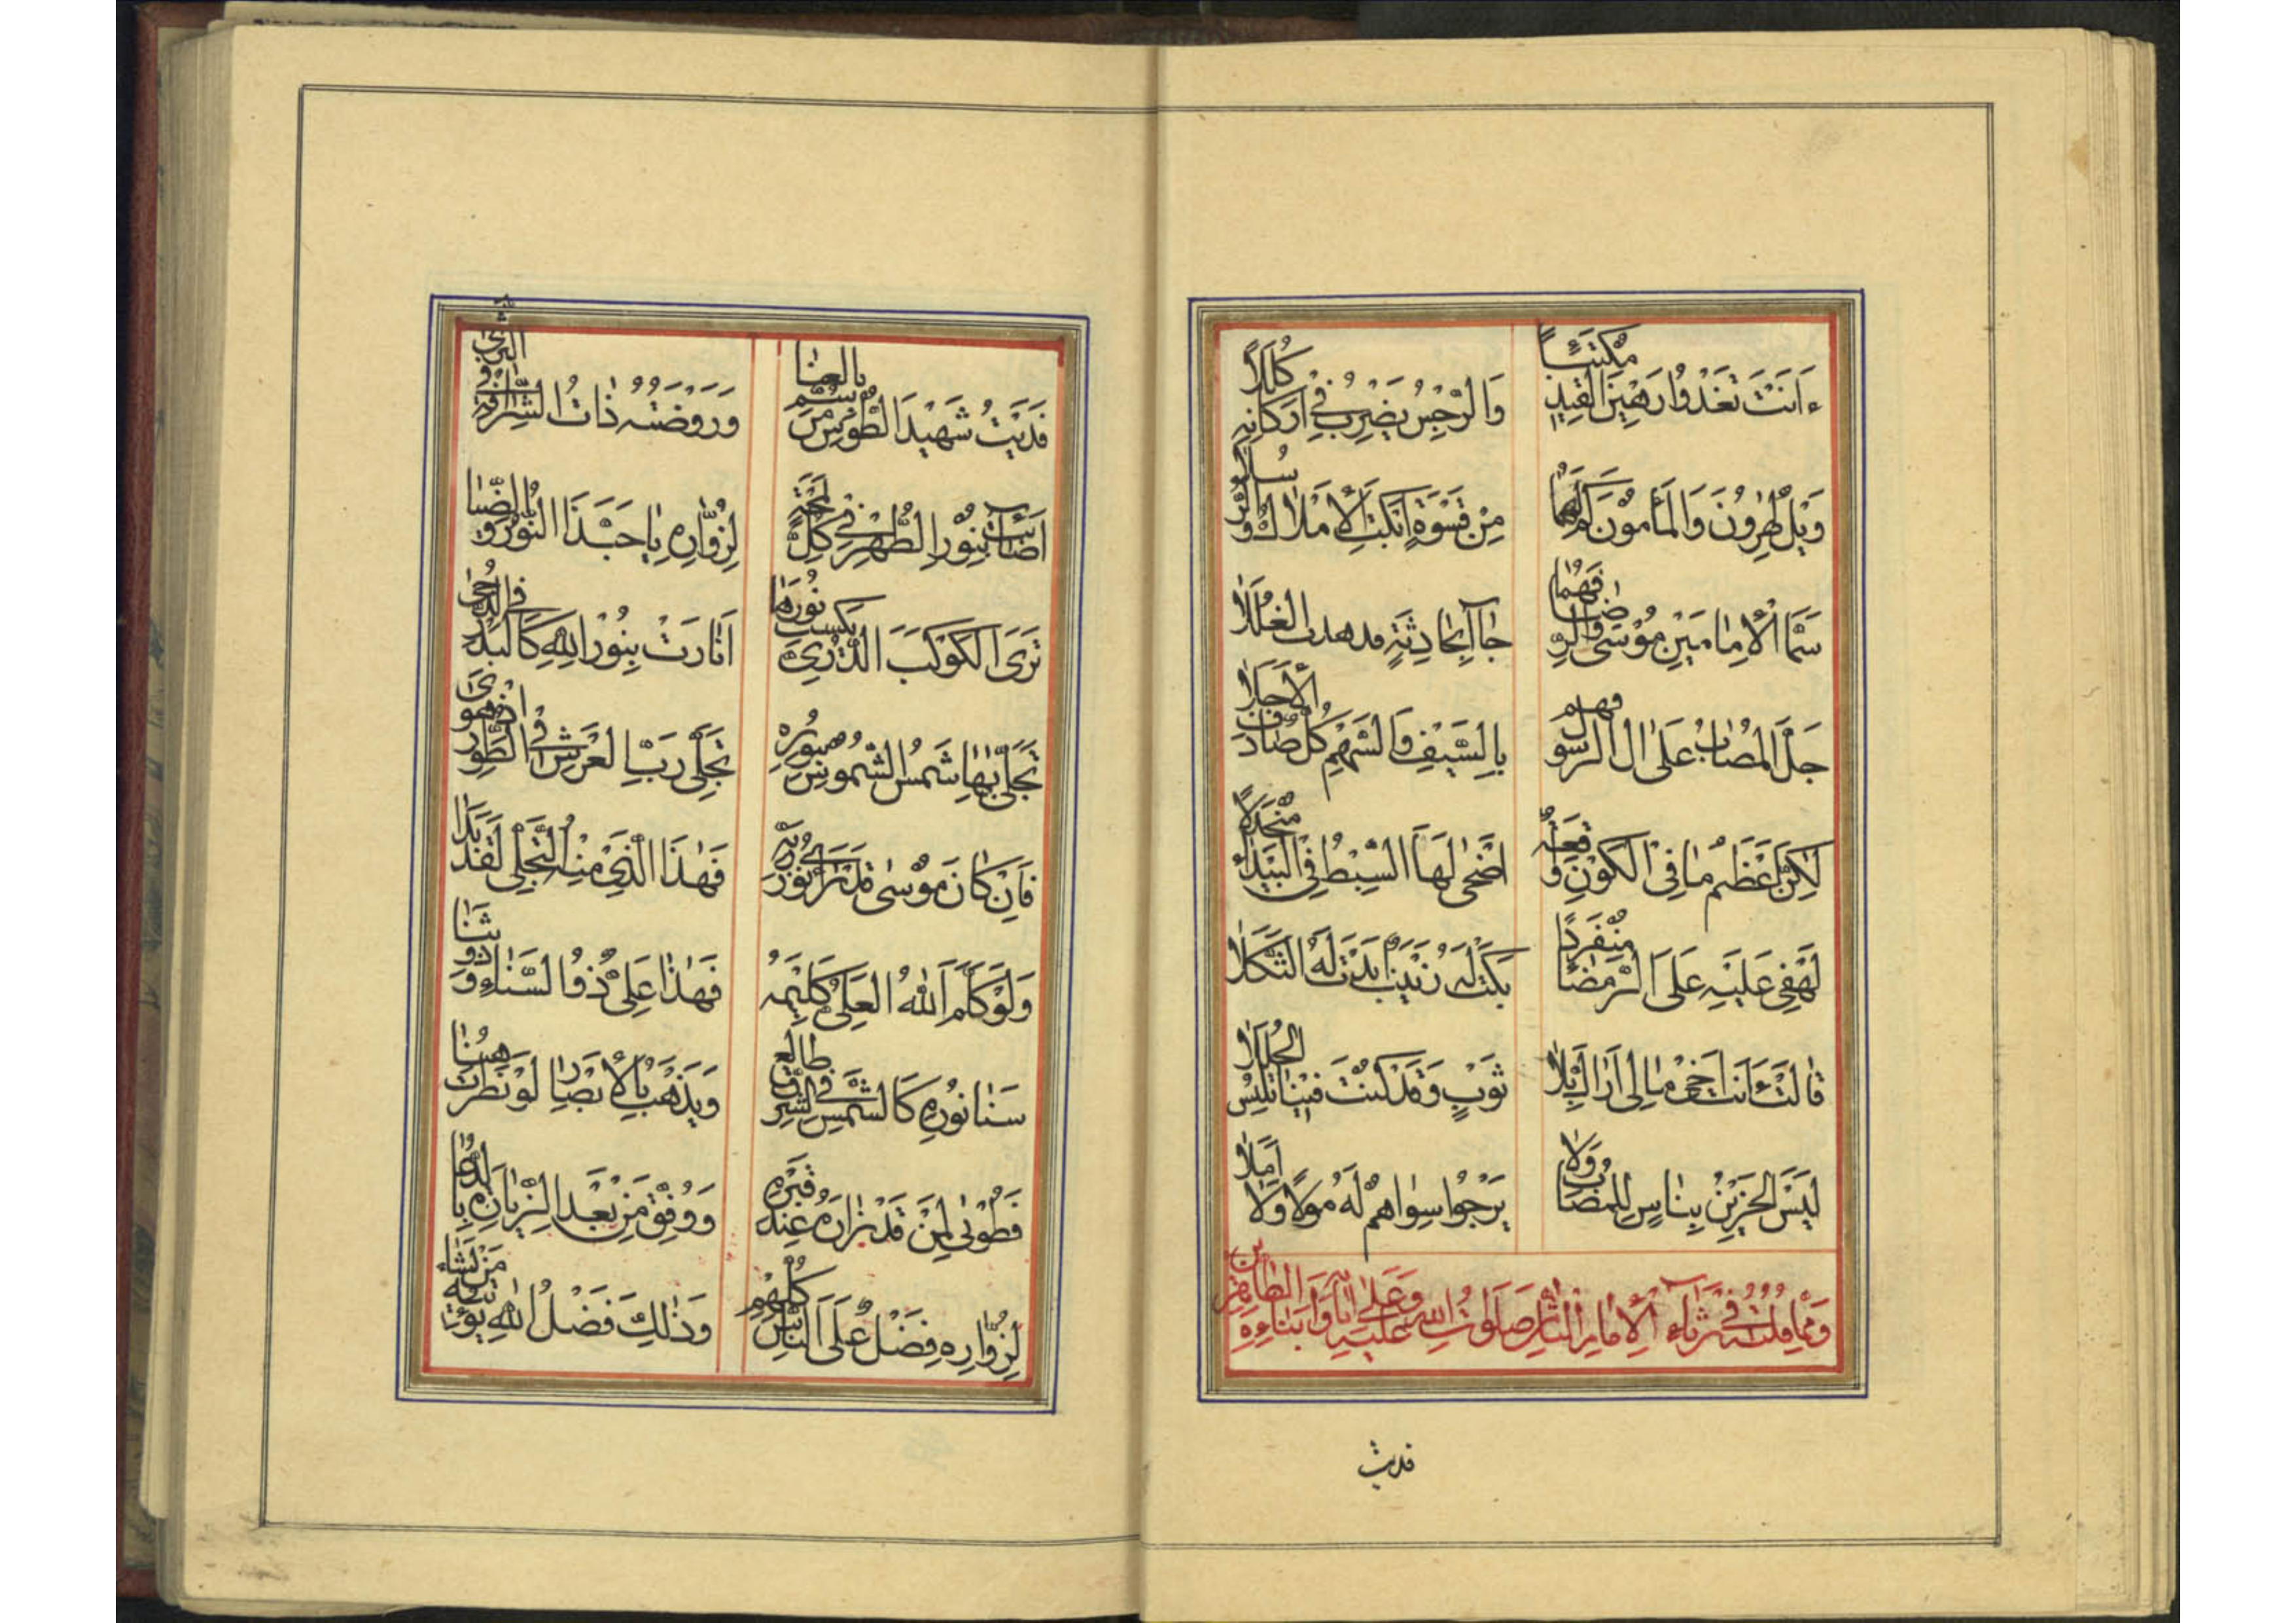 ءَاَنْتَ تَغْدُوا رَهِيْنَ الْقَيْدِ مُكْتَئِبًا
وَالرِّجْسُ يَضْرِبُ فِيْ اَرْكَانِهِ كُلَلًا
وَيْلٌ لِهٰرُوْنَ وَالْمَأْمُوْنَ
مِنْ قَسْوَةٍ اَبْكَتِ الْاَمْلَاكَ وَالرُّسُلَا
سَمَّا الْاِمَامَيْنِ مُوْسٰى وَالرِّضَا فَهُمَا
جَاآ بِحَادِثَةٍ قد هدت الْقُلَلَا
جَلَّ الْمُصَابُ عَلٰى اٰلِ الرَّسُوْلِ فهم
بِالسَّيْفِ وَالسَّهْمِ كُلٌّ صَادَفَ الْاَجَلَا
لٰكِنَّ اَعْظَمَ مَا فِى الْكَوْنِ وَقْعَتُهُ
اَضْحٰى لَهَا السِّبْطُ فِى الْبَيْدَاءِ مُنْجَدِلًا
لَهْفِىْ عَلَيْهِ عَلَى الرَّمْضَاءِ مُنْفَرِدًا
بَكَتْ لَهُ زَيْنَبٌ اَبْدَتْ لَهُ الثَّكَلَا
قَالَتْ ءَاَنْتَ اَخِىْ مَا لِىْ اَرَاكَ بِلَا
ثَوْبٍ وَقَدْ كُنْتَ فِيْنَا تَلْبَسُ الْحُلَلَا
لَيْسَ الْحَزِيْنُ بِنَاسٍ لِلْمُصَابِ وَلَا
يَرْجُوْا سِوَاهُمْ لَهُ مَوْلًا وَلَا اَمَلًا
وَمِمَّا قُلْتُهُ فِيْ رِثَاءِ الْاِمَامِ الثَّامِنِ صَلَوَاتُ اللهِ عَلَيْهِ وَعَلٰى اٰبَاءِهِ وَاَبْنَاءِهِ الطَّاهِرِيْنَ
فديت
فَدَيْتُ شَهِيْدَ الطُّوْسِ مَنْ سُمَّ بِالْعِنَا
وَرَوْضَتُهُ ذَاتُ الشَّرَافَةِ
اَضَائَتْ بِنُوْرِ الطُّهْرِ فِيْ كُلِّ لَمْحَةٍ
لِزُوَّارِهِ يَا حَبَّذَا النُّوْرُ وَالضِّيَا
تَرَى الْكَوْكَبَ الدُّرِّيَّ يَكْسِبُ نُوْرَهَا
اَنَارَتْ بِنُوْرِ اللهِ كَالْبَدْرِ فِى الدُّجٰى
تَجَلّٰى بِهَا شَمْسُ الشُّمُوْسِ بِنُوْرِهِ
تَجَلِّىَ رَبِّ الْعَرْشِ فِى الطُّوْرِ اِذْ هُوَ نَجٰى
فَاِنْ كَانَ مُوْسٰى قَدْ رَاٰى نُوْرَ رَبِّهِ
فَهٰذَا الَّذِىْ مِنْهُ التَّجَلِّى لَقَدْ بَدَا
وَلَوْ كَلَّمَ اللهُ الْعَلِىُّ كَلِيْمَهُ
فَهٰذَا عَلِىٌّ ذُو السَّنَاءِ وَذُوْ ثَنَا
سَنَا نُوْرِهِ كَالشَّمْسِ فِى الشَّرْقِ طَالِعٌ
وَيَذْهَبُ بِالْاَبْصَارِ لَوْ نَظَرَتْ هُنَا
فَطُوْبٰى لِمَنْ قَدْ زَارَهُ عِنْدَ قَبْرِهِ
وَوُفِّقَ مِنْ بَعْدِ الزِّيَارَةِ بِالدُّعَا
لِزُوَّارِهِ فَضْلٌ عَلَى النَّاسِ كُلِّهِمْ
وَذٰلِكَ فَضْلُ اللهِ يُؤْتِيْهِ مَنْ يَشَاءُ